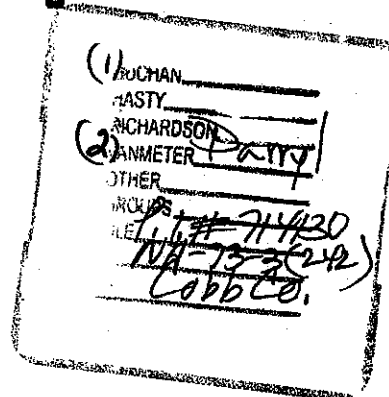 (1) BUCHAN
HASTY
RICHARDSON
(2) VANMETER Parry
OTHER
P.I.# 714130
NH-75-3(242)
Cobb Co.